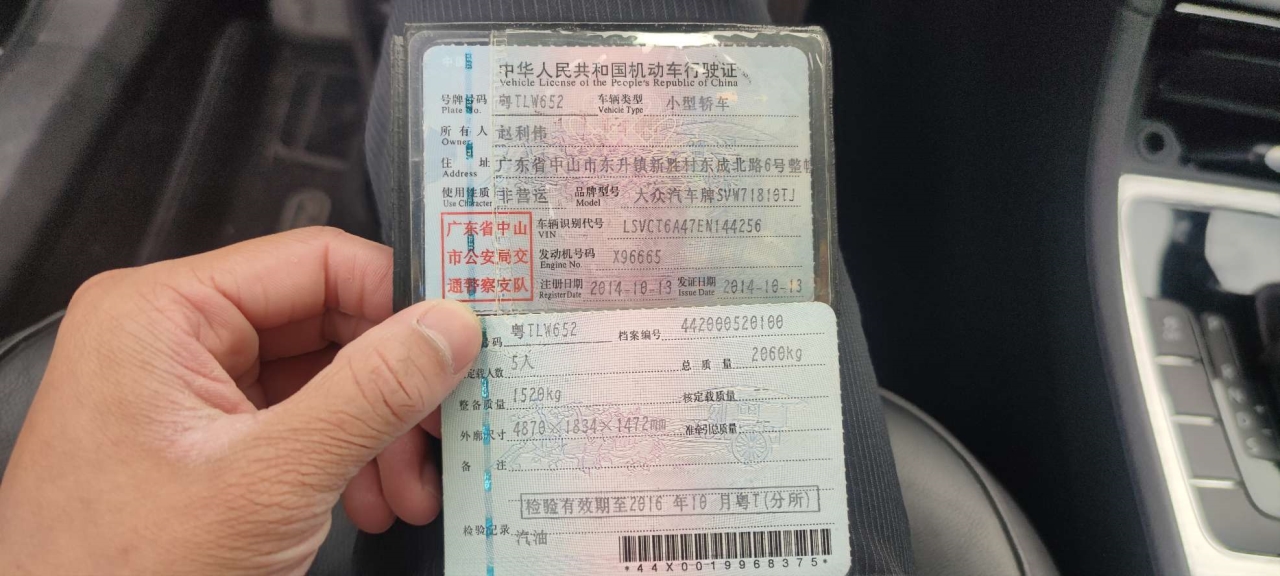 中华人民共和国机动车行驶证
Vehicle License of the People's Republic of China
号牌号码 粤TLW652 车辆类型 小型轿车
Plate No. Vehicle Type
所有人 赵利伟
Owner
住址 广东省中山市东升镇新胜村东成北路6号整
Address
使用性质 非营运 品牌型号 大众汽车牌SVW71810TJ
Use Character Model
广东省中山
市公安局交
通警察支队
车辆识别代号 LSVCT6A47EN144256
VIN
发动机号码 X96665
Engine No.
注册日期 2014-10-13 发证日期 2014-10-13
Register Date Issue Date
码 粤TLW652 档案编号 442000520100
定载人数 5人 总质量 2060kg
整备质量 1520kg 核定载质量
外廓尺寸 4870×1834×1472mm 准牵引总质量
备注
检验有效期至2016 年10 月粤T(分所)
检验记录 汽油
*44X0019968375*